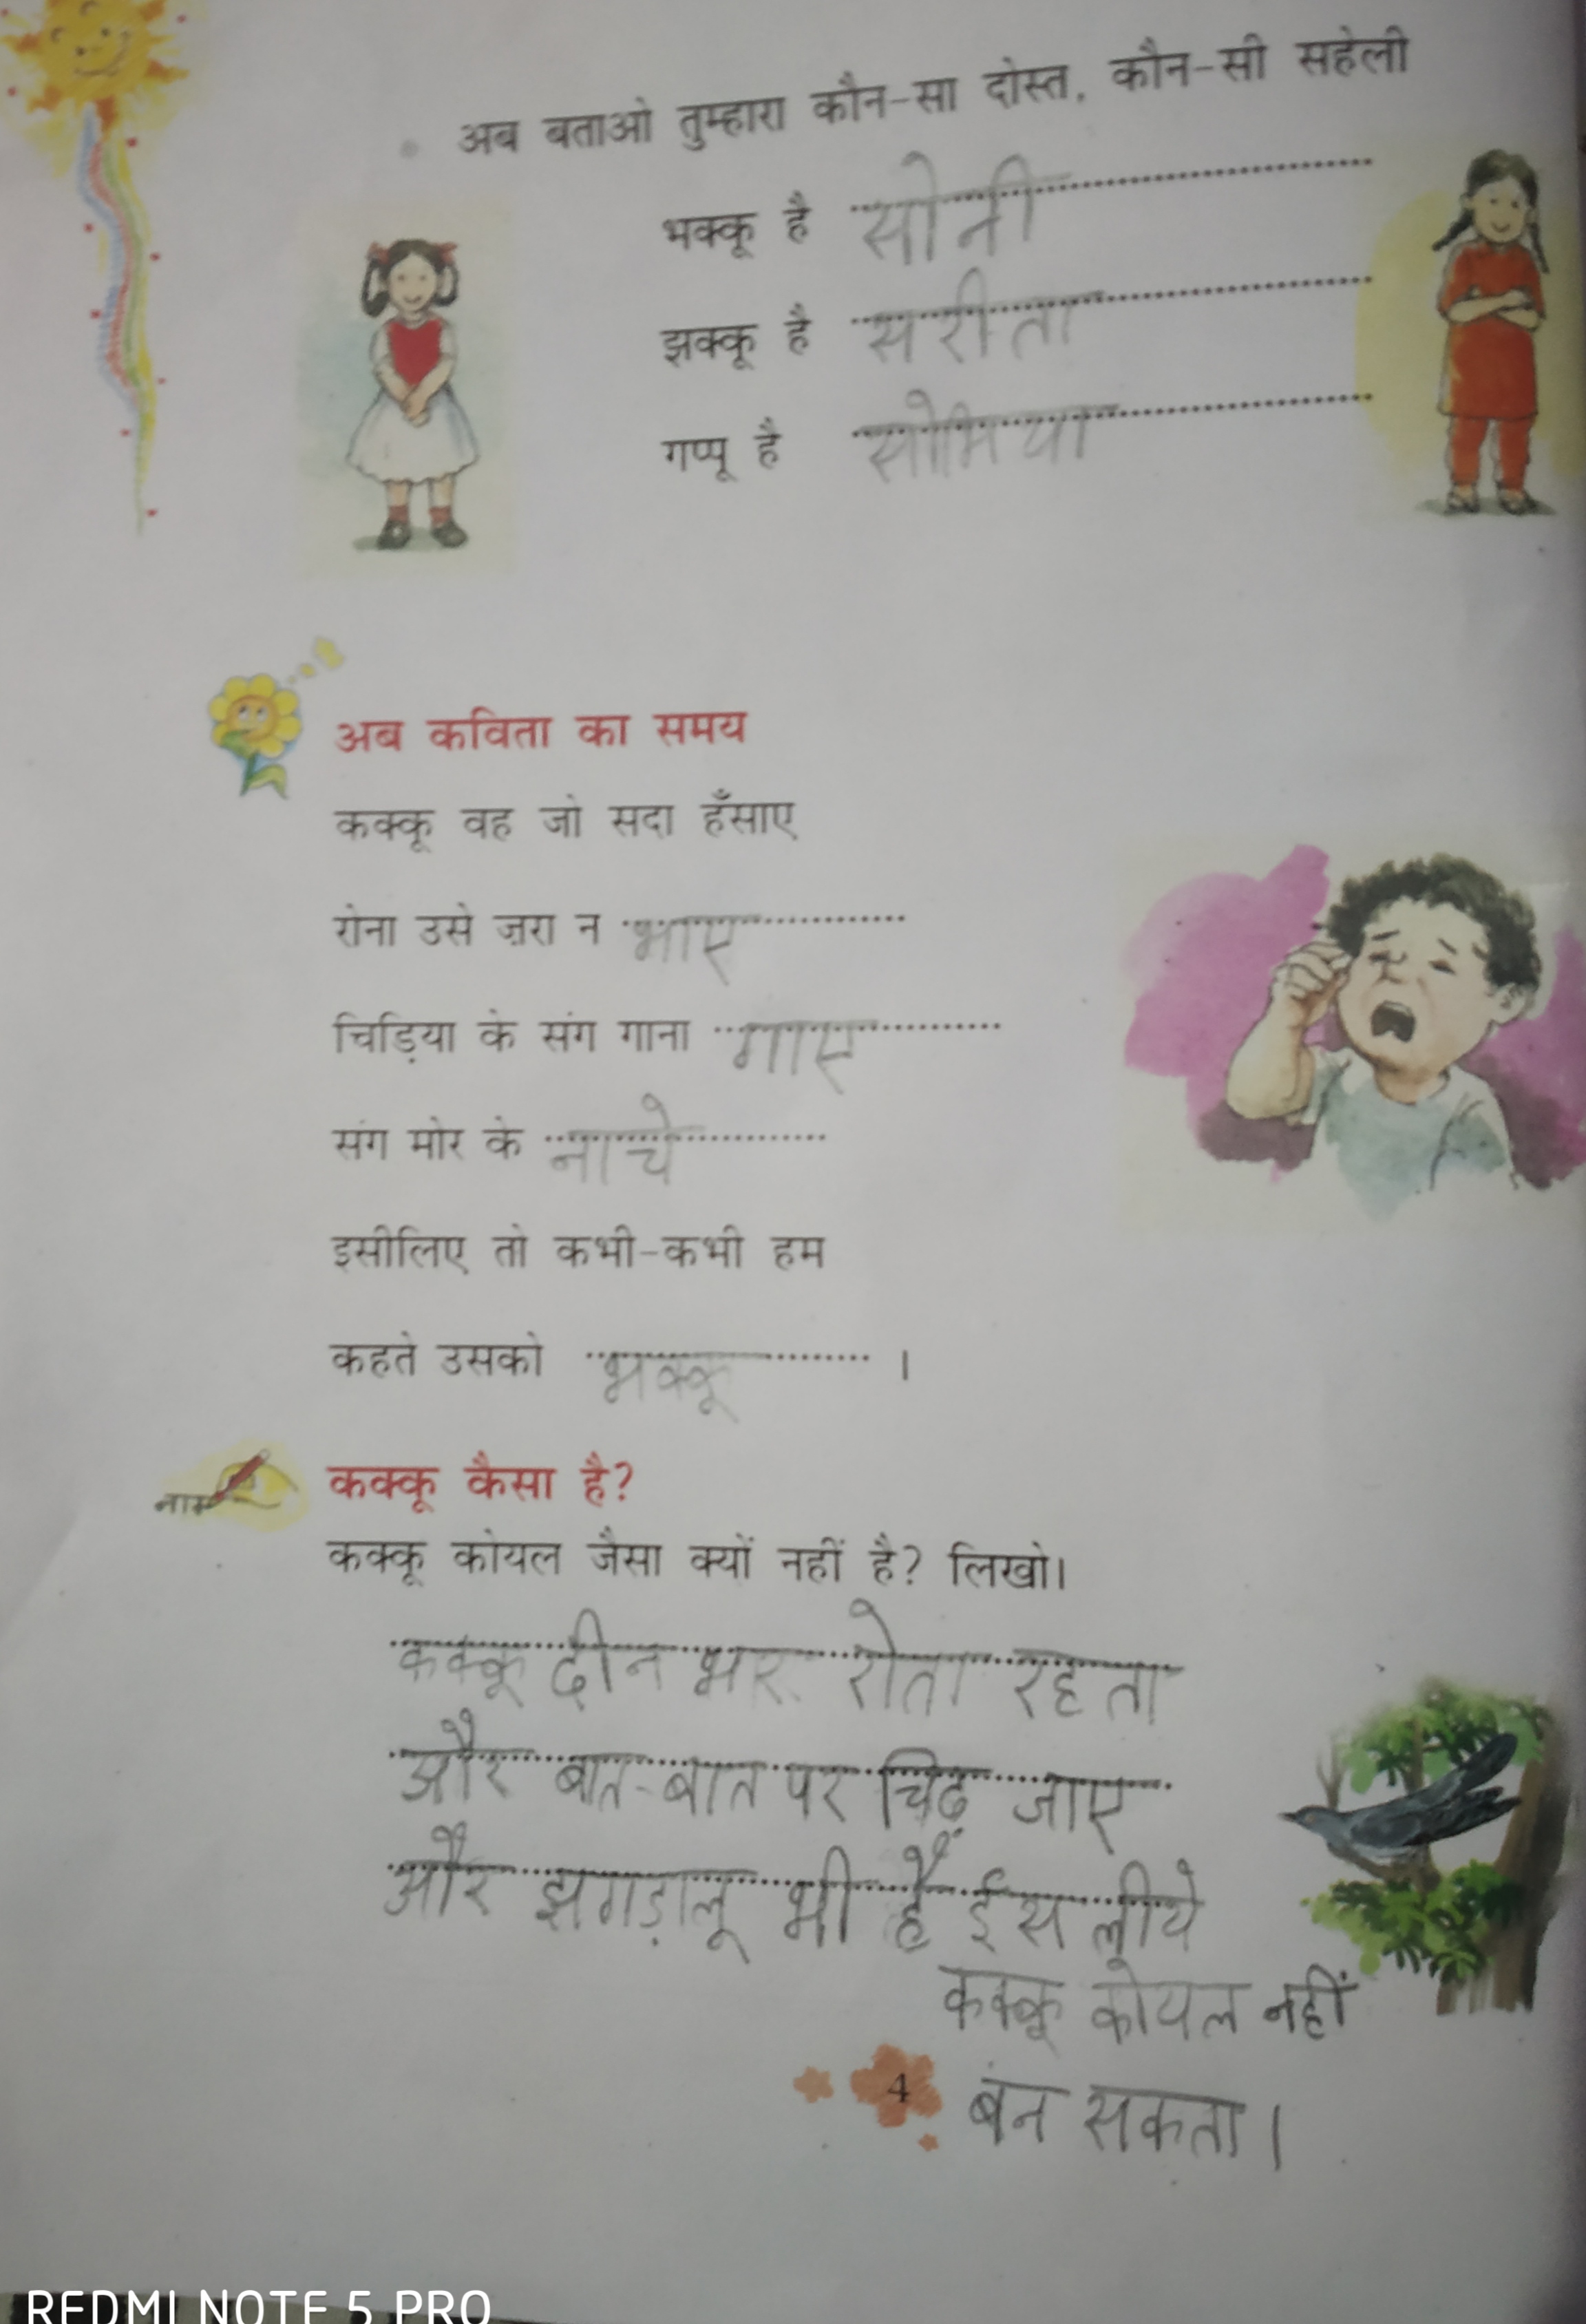 अब बताओ तुम्हारा कौन-सा दोस्त, कौन-सी सहेली
भक्कू है सोनी
झक्कू है सरीता
गप्पू है सोमिया
अब कविता का समय
कक्कू वह जो सदा हँसाए
रोना उसे ज़रा न भाए
चिड़िया के संग गाना गाए
संग मोर के नाचे
इसीलिए तो कभी-कभी हम
कहते उसको भक्कू ।
नाम
कक्कू कैसा है?
कक्कू कोयल जैसा क्यों नहीं है? लिखो।
कक्कू दीन भर रोता रहता
और बात-बात पर चिढ़ जाए
और झगड़ालू भी हैं ईस लीये
कक्कू कोयल नहीं
4 बंन सकता।
REDMI NOTE 5 PRO